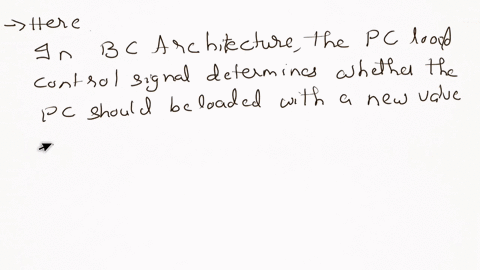 →Here
In BC Architecture, the PC load
control signal determines whether the
PC should be loaded with a new value